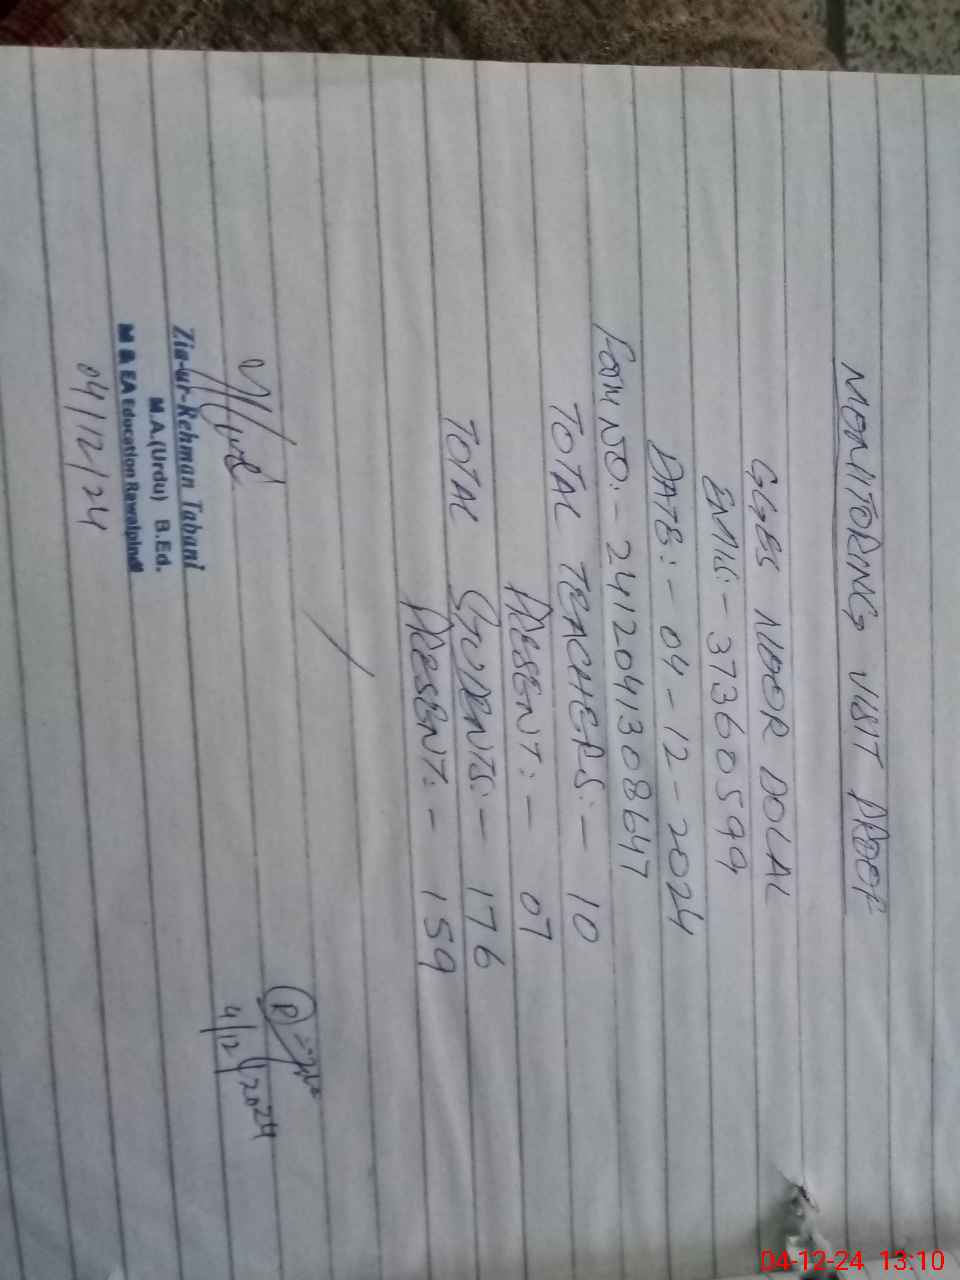 MONITORING VISIT PROOF
GGES NOOR DOLAL
EMIS:- 37360599
DATE:- 04-12-2024
FORM NO:- 2412041308647
TOTAL TEACHERS:- 10
PRESENT:- 07
TOTAL STUDENTS:- 176
PRESENT:- 159
4/12/2024
Zia-ur-Rehman Tabani
M.A.(Urdu) B.Ed.
M & EA Education Rawalpindi
04/12/24
04-12-24 13:10